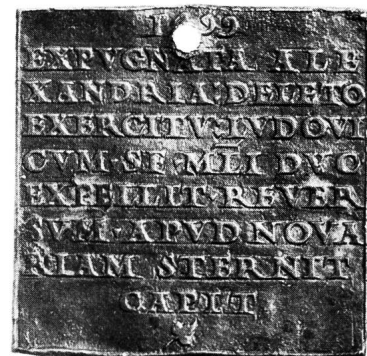 1499
EXPVGNATA ALE
XANDRIA·DELETO
EXERCITV·LVDOVI
CVM·SE·MLI DVC
EXPELLIT·REVER
SVM·APVD·NOVA
RIAM STERNIT
CAPIT